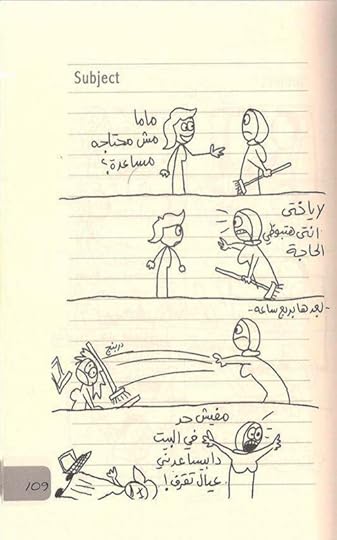 Subject
ماما
مش محتاجه
مساعدة؟
لا ياختى
انتى هتبوظي
الحاجة
-بعدها بربع ساعه-
درينج
مفيش حد
في البيت
دا بيساعدني
عيال تقرف!
109